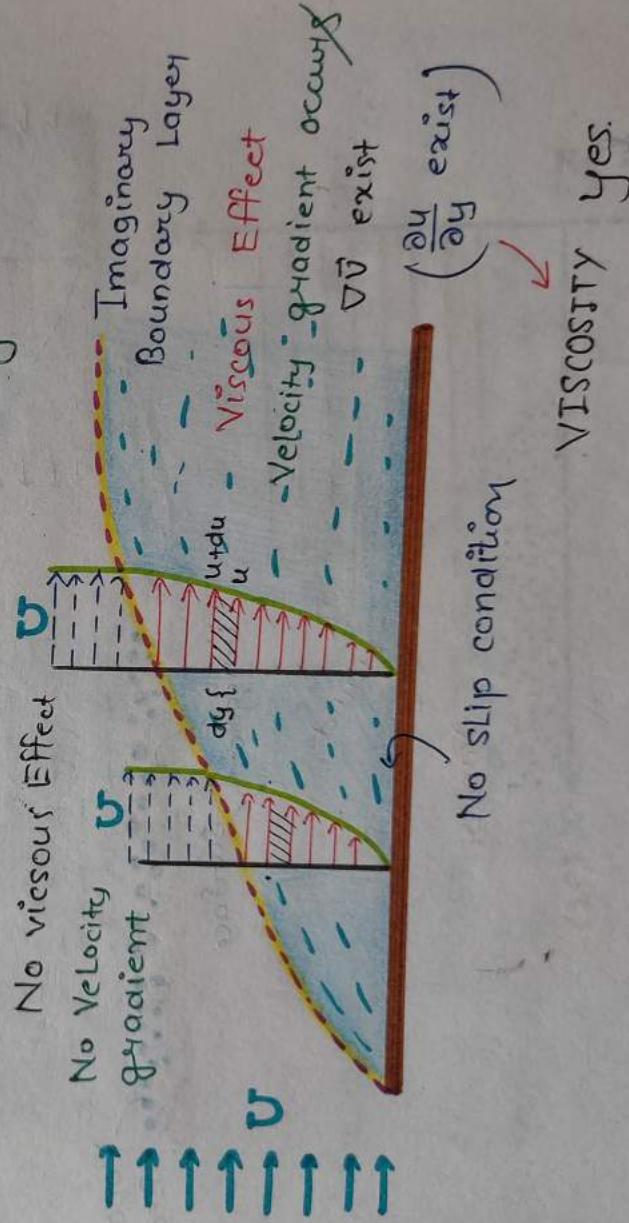 No vicsous Effect
No Velocity
gradient
U
U
U
Imaginary
Boundary Layer
Viscous Effect
Velocity gradient occurs
∇v⃗ exist
(∂u/∂y exist)
dy{
u+du
u
No slip condition
VISCOSITY Yes.